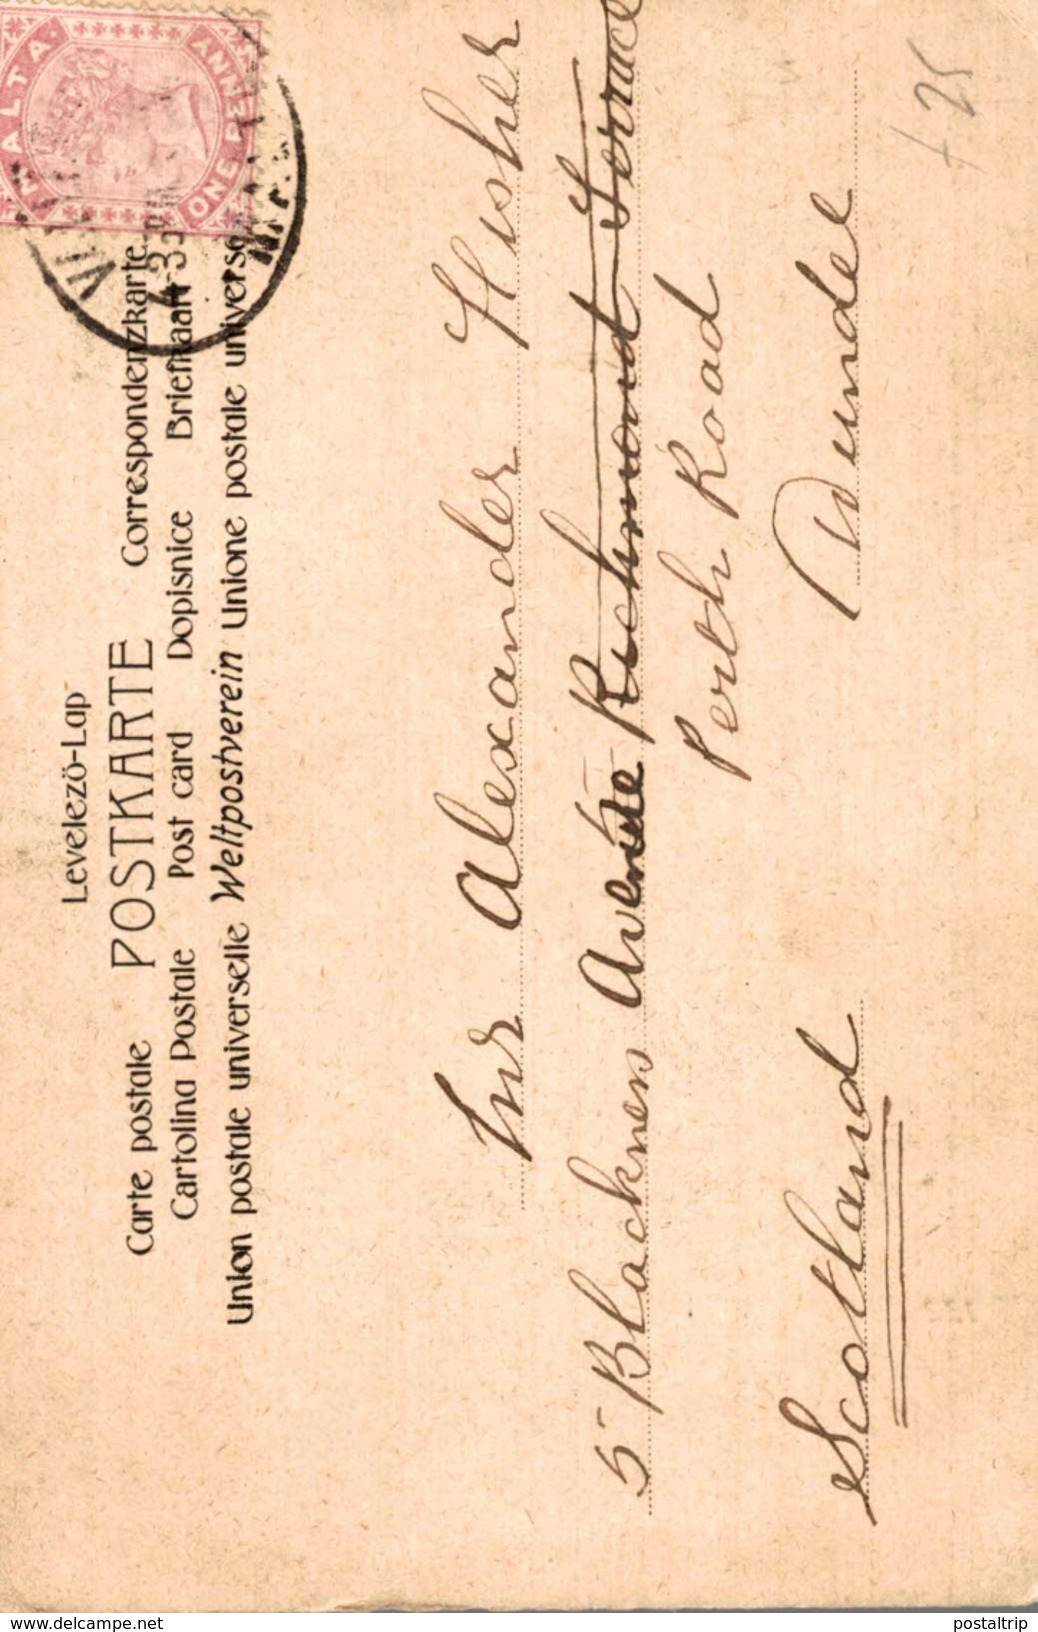 Levelező-Lap
Carte postale POSTKARTE Correspondenzkarte.
Cartolina Postale Post card Dopisnice Briefkaart
Union postale universelle Weltpostverein Unione postale universe
MALTA ONE PENNY
4-35
Mr Alexander Husher
5 Blackness Avenue Richmond Terrace
Perth Road
Scotland Dundee
delcampe.net
postaltrip